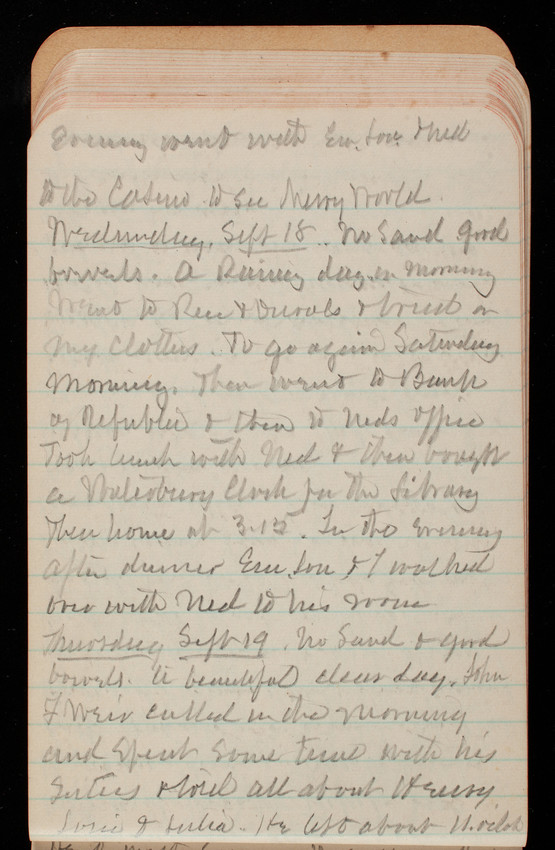 Evening went with Em, Lou & Ned
to the Casino to see Merry World.
Wednesday, Sept 18. No Sand good
bowels. A Rainy day in morning
Went to Rice & Duvals & tried on
my clothes. To go again Saturday
Morning. Then went to Bank
of Republic & then to Neds office
Took lunch with Ned & then bought
a Waterbury Clock for the Library
Then home at 3.15. In the evening
after dinner Em, Lou & I walked
over with Ned to his room
Thursday Sept 19. No Sand & good
bowels. A beautiful clear day. John
F Weir called in the morning
and spent some time with his
Sisters & told all about
& Julia. He left about 11. oclock